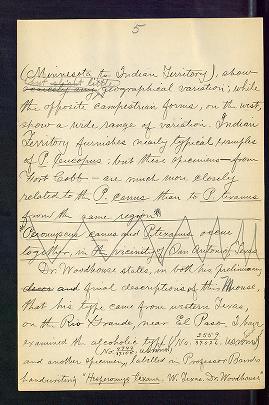 5
(Minnesota to Indian Territory), show
but slight little
scarcely any geographical variation; while
the opposite campestrian forms, on the west,
show a wide range of variation. Indian
Territory furnishes nearly typical examples
of P. leucopus; but these specimens—from
Foot Cobb—are much more closely
related to the P. canus than to P. texanus
from the same region.
Peromyscus canus and P. texanus occur
together, in the vicinity of San Antonio, Texas.
Dr. Woodhouse states, in both his preliminary
and final descriptions of this Mouse,
that his type came from western Texas,
on the Rio Grande, near El Paso. I have
examined the alcoholic type (No. 2559
and another specimen, labelled in Professor Baird's
handwriting "Hesperomys texana, W. Texas. Dr. Woodhouse"